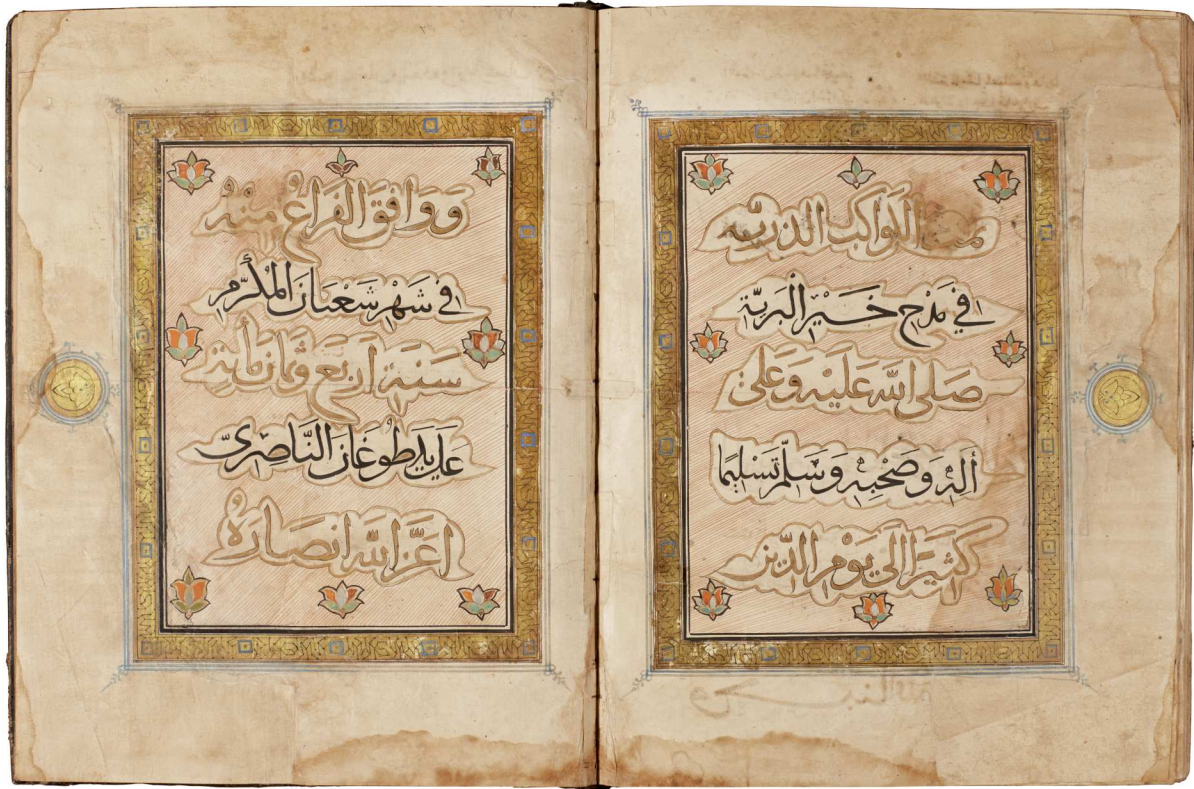 تمت الكواكب الدرية
في مدح خير البرية
صلى الله عليه وعلى
أله وصحبه وسلم تسليما
كثيرا الى يوم الدين
ووافق الفراغ منه
في شهر شعبان المكرم
سنة اربع وثمان مائة
على يد طوغان الناصرى
اعز الله انصاره